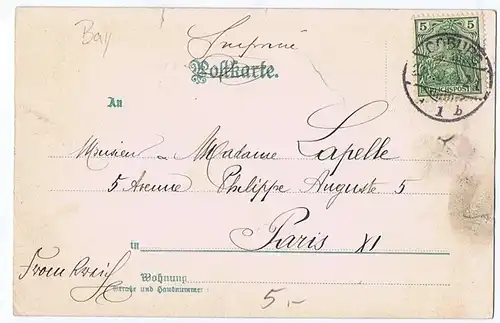 Bay
Imprimé
5 5
Postkarte.
COBURG
REICHSPOST
1 b
An
Monsieur - Madame Lapelle
5 Avenue Philippe Auguste 5
Paris XI
in
Frankreich
Wohnung
Straße und Hausnummer
5.-